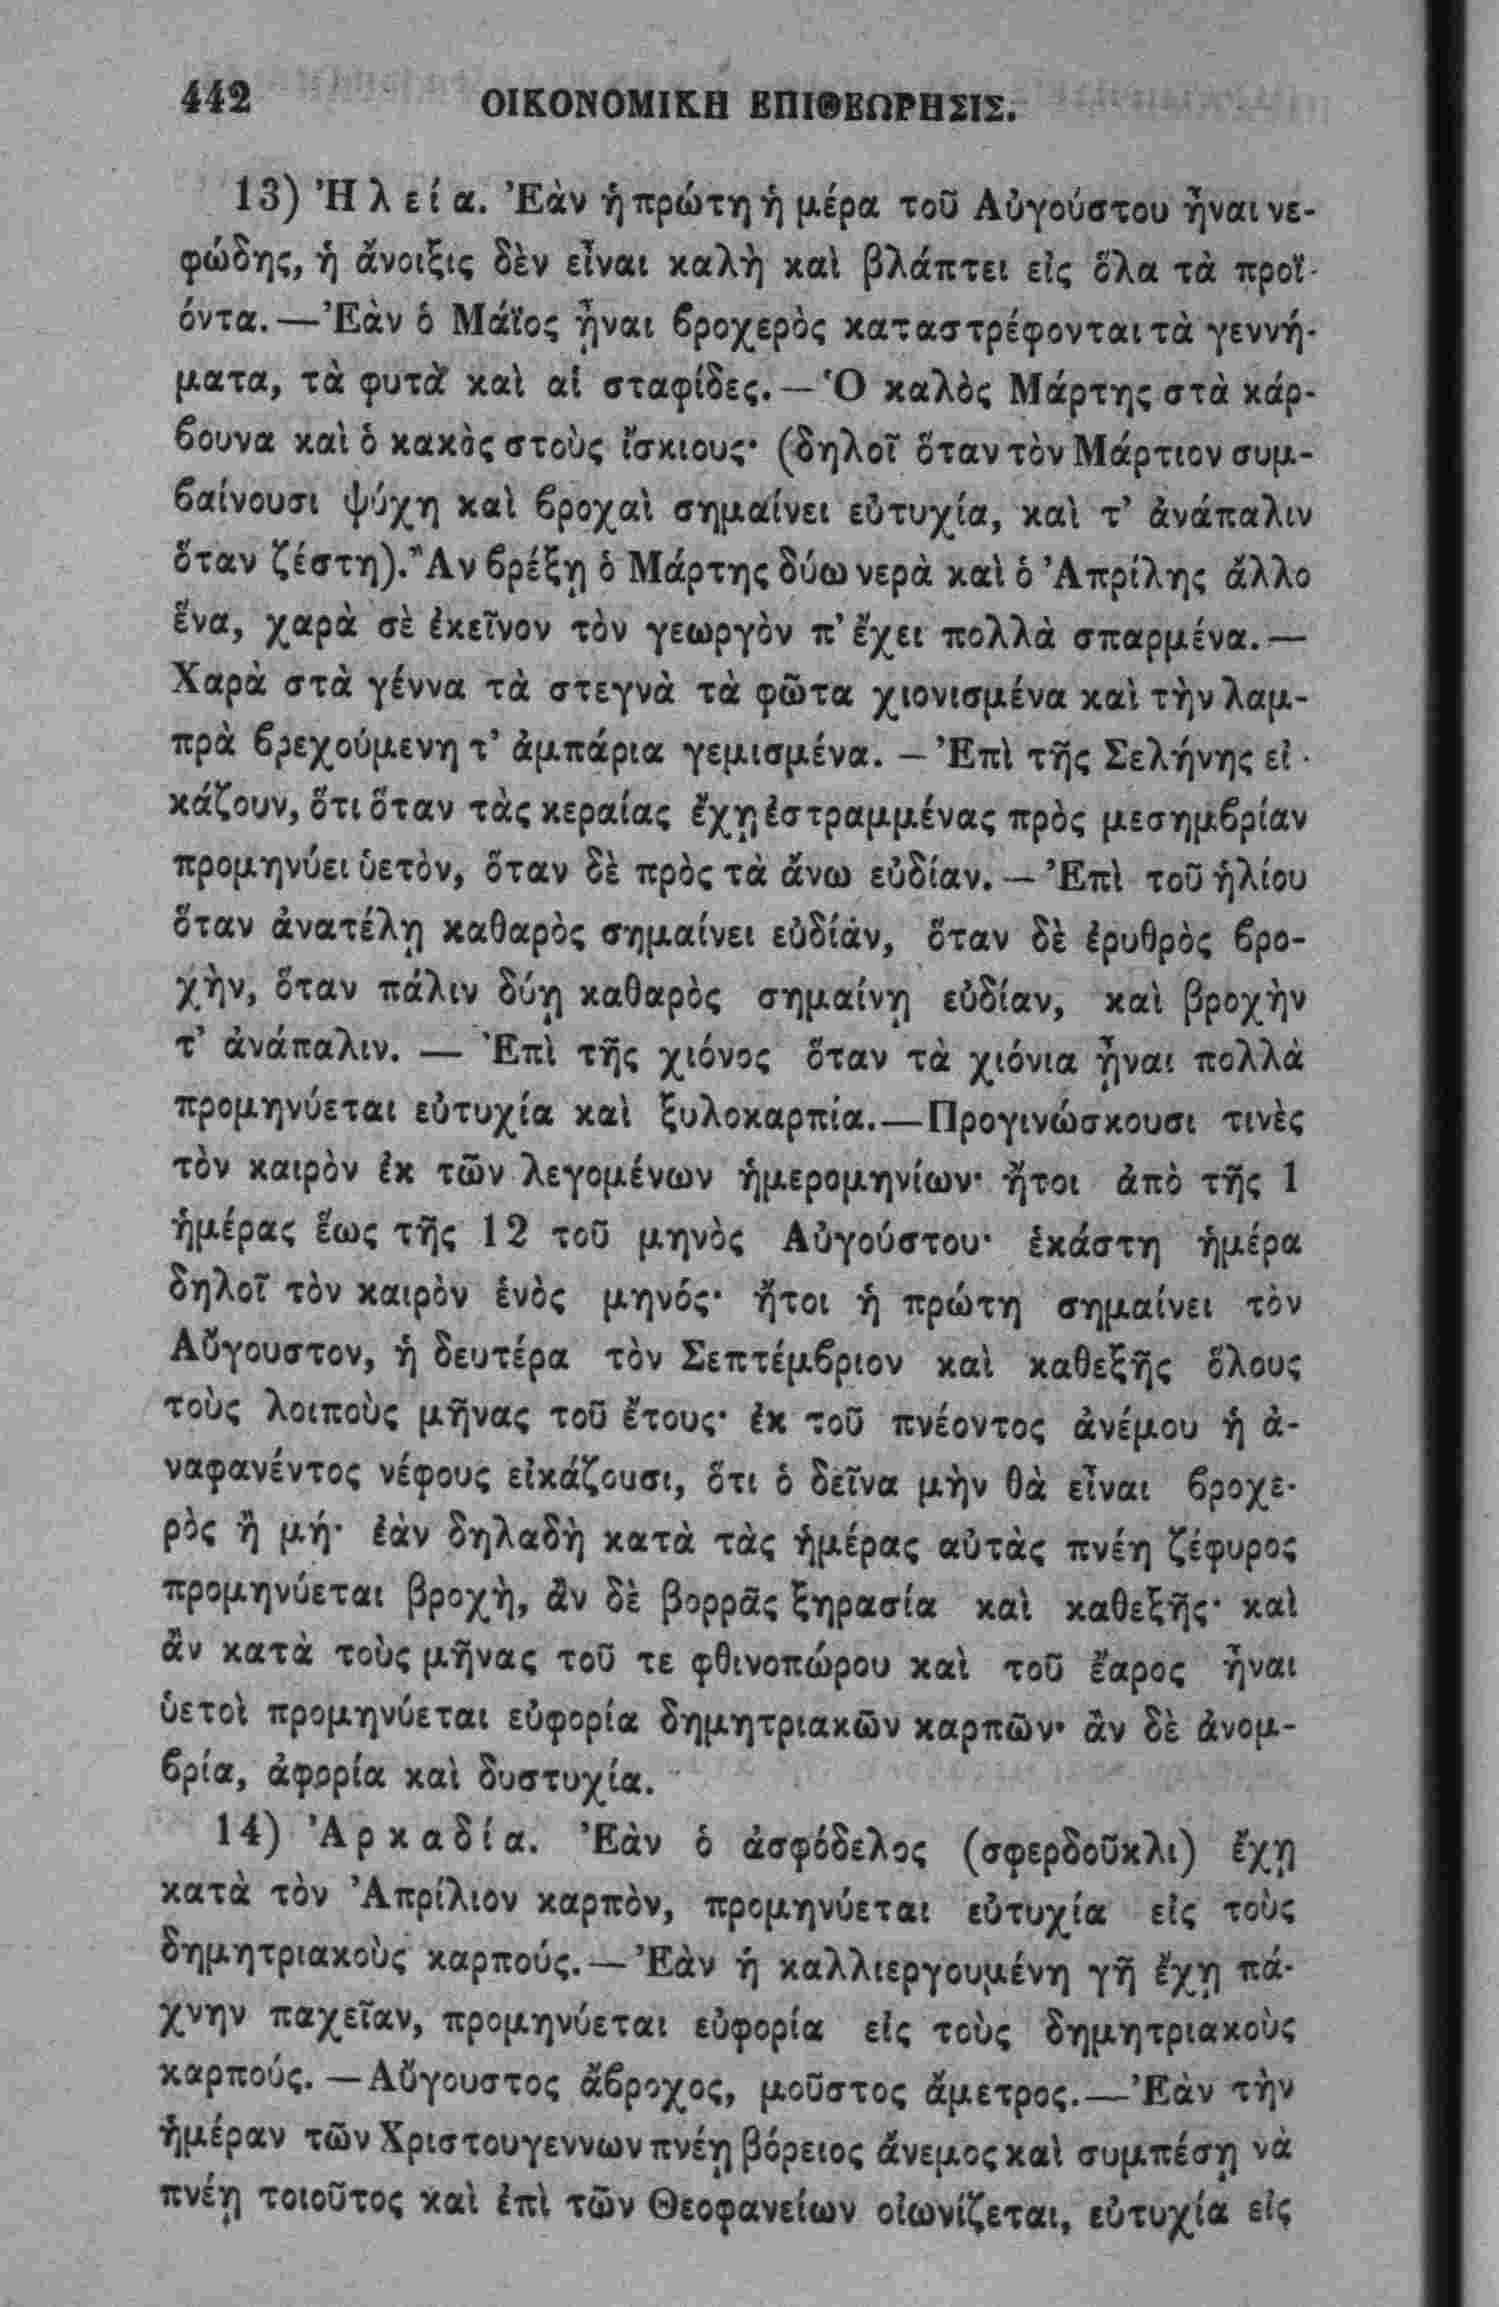 442 ΟΙΚΟΝΟΜΙΚΗ ΕΠΙΘΕΩΡΗΣΙΣ.
13) Ἠλεία. Ἐὰν ἡ πρώτη ἡ μέρα τοῦ Αὐγούστου ἦναι νε-
φώδης, ἡ ἄνοιξις δὲν εἶναι καλὴ καὶ βλάπτει εἰς ὅλα τὰ προϊ-
όντα.—Ἐὰν ὁ Μάϊος ᾖναι βροχερὸς καταστρέφονται τὰ γεννή-
ματα, τὰ φυτὰ καὶ αἱ σταφίδες.—Ὁ καλὸς Μάρτης στὰ κάρ-
βουνα καὶ ὁ κακὸς στοὺς ἴσκιους· (δηλοῖ ὅταν τὸν Μάρτιον συμ-
βαίνουσι ψύχη καὶ βροχαὶ σημαίνει εὐτυχία, καὶ τ' ἀνάπαλιν
ὅταν ζέστη). Ἂν βρέξῃ ὁ Μάρτης δύω νερὰ καὶ ὁ Ἀπρίλης ἄλλο
ἕνα, χαρὰ σὲ ἐκεῖνον τὸν γεωργὸν π' ἔχει πολλὰ σπαρμένα.—
Χαρὰ στὰ γέννα τὰ στεγνὰ τὰ φῶτα χιονισμένα καὶ τὴν λαμ-
πρὰ βρεχούμενη τ' ἀμπάρια γεμισμένα. – Ἐπὶ τῆς Σελήνης εἰ-
κάζουν, ὅτι ὅταν τὰς κεραίας ἔχῃ ἐστραμμένας πρὸς μεσημβρίαν
προμηνύει ὑετὸν, ὅταν δὲ πρὸς τὰ ἄνω εὐδίαν. — Ἐπὶ τοῦ ἡλίου
ὅταν ἀνατέλῃ καθαρὸς σημαίνει εὐδίάν, ὅταν δὲ ἐρυθρὸς βρο-
χὴν, ὅταν πάλιν δύῃ καθαρὸς σημαίνῃ εὐδίαν, καὶ βροχὴν
τ' ἀνάπαλιν. — Ἐπὶ τῆς χιόνος ὅταν τὰ χιόνια ᾖναι πολλὰ
προμηνύεται εὐτυχία καὶ ξυλοκαρπία.—Προγινώσκουσι τινὲς
τὸν καιρὸν ἐκ τῶν λεγομένων ἡμερομηνίων· ἤτοι ἀπὸ τῆς 1
ἡμέρας ἕως τῆς 12 τοῦ μηνὸς Αὐγούστου· ἑκάστη ἡμέρα
δηλοῖ τὸν καιρὸν ἑνὸς μηνός· ἤτοι ἡ πρώτη σημαίνει τὸν
Αὔγουστον, ἡ δευτέρα τὸν Σεπτέμβριον καὶ καθεξῆς ὅλους
τοὺς λοιποὺς μῆνας τοῦ ἔτους· ἐκ τοῦ πνέοντος ἀνέμου ἡ ἀ-
ναφανέντος νέφους εἰκάζουσι, ὅτι ὁ δεῖνα μὴν θὰ εἶναι βροχε-
ρὸς ἢ μή· ἐὰν δηλαδὴ κατὰ τὰς ἡμέρας αὐτὰς πνέη ζέφυρος
προμηνύεται βροχὴ, ἂν δὲ βορρᾶς ξηρασία καὶ καθεξῆς· καὶ
ἂν κατὰ τοὺς μῆνας τοῦ τε φθινοπώρου καὶ τοῦ ἔαρος ἦναι
ὑετοὶ προμηνύεται εὐφορία δημητριακῶν καρπῶν· ἂν δὲ ἀνομ-
βρία, ἀφορία καὶ δυστυχία.
14) Ἀρκαδία. Ἐὰν ὁ ἀσφόδελος (σφερδοῦκλι) ἔχῃ
κατὰ τὸν Ἀπρίλιον καρπὸν, προμηνύεται εὐτυχία εἰς τοὺς
δημητριακοὺς καρπούς.—Ἐὰν ἡ καλλιεργουμένη γῆ ἔχῃ πά-
χνην παχεῖαν, προμηνύεται εὐφορία εἰς τοὺς δημητριακοὺς
καρπούς.—Αὔγουστος ἄβροχος, μοῦστος ἄμετρος.—Ἐὰν τὴν
ἡμέραν τῶν Χριστουγεννων πνέῃ βόρειος ἄνεμος καὶ συμπέσῃ νὰ
πνέῃ τοιοῦτος καὶ ἐπὶ τῶν Θεοφανείων οἰωνίζεται, εὐτυχία εἰς